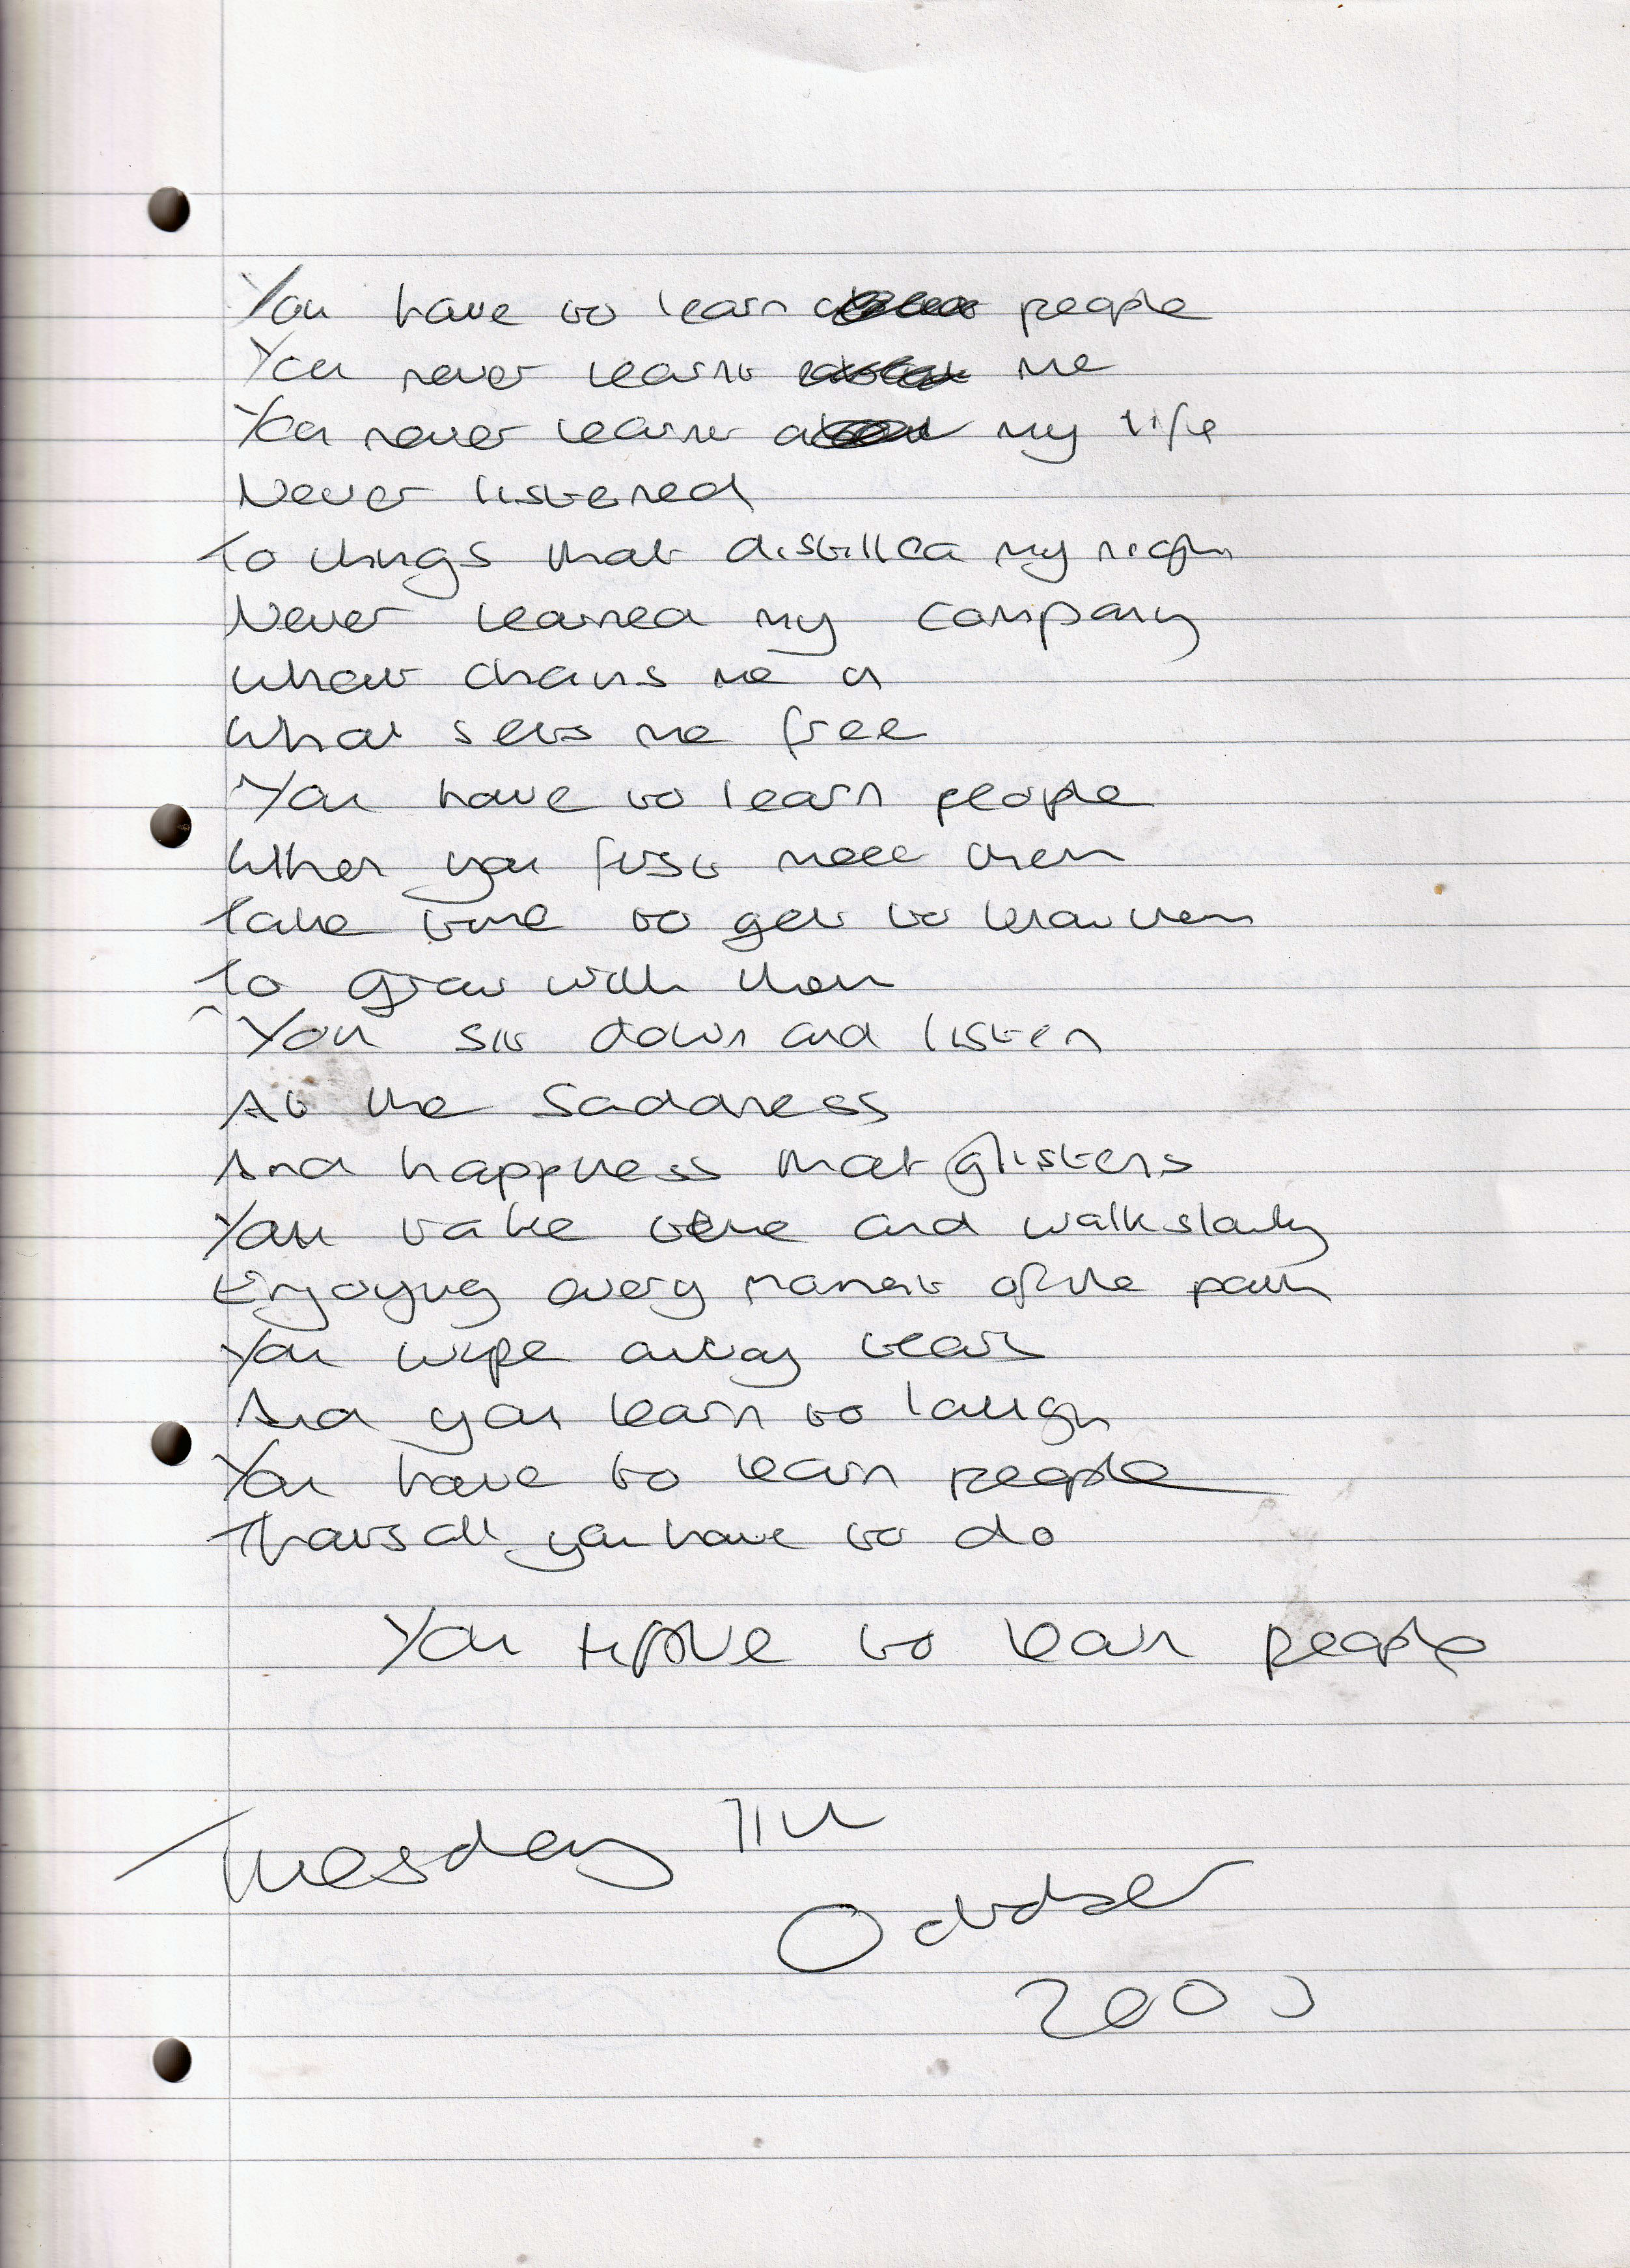 You have to learn people
You never learnt me
You never learnt my life
Never listened
To things that distilled my night
Never learned my company
What chains me a
What sets me free
You have to learn people
When you first meet them
Take time to get to know them
To grow with them
You sit down and listen
At the saddness
And happiness that glistens
You take time and walk slowly
Enjoying every moment of the path
You wipe away tears
And you learn to laugh
You have to learn people
Thats all you have to do
You HAVE to learn people
Tuesday 11th
October
200